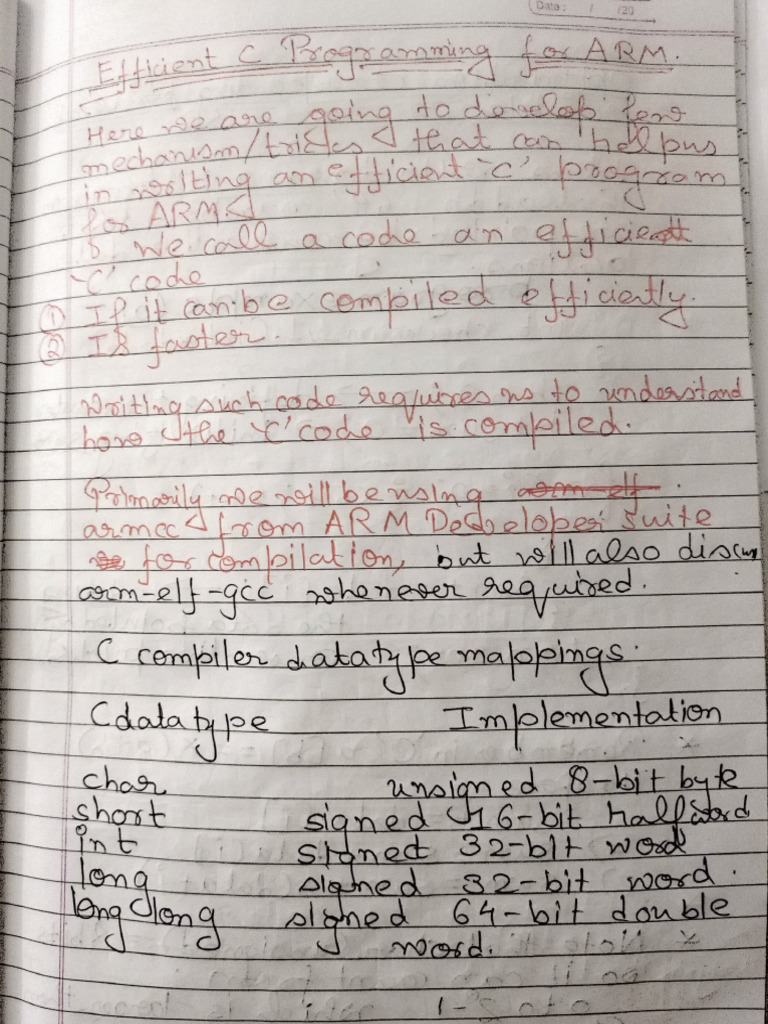 Date: / /20
Efficient C Programming for ARM.
Here we are going to develop few
mechanism/tricks that can help us
in writing an efficient 'C' program
for ARM
We call a code an efficient
'C' code
① If it can be compiled efficiently.
② Is faster.
Writing such code requires us to understand
how the 'C' code is compiled.
Primarily we will be using arm-elf
armcc from ARM Developer Suite
for compilation, but will also discuss
arm-elf-gcc whenever required.
C compiler datatype mappings.
C datatype Implementation
char unsigned 8-bit byte
short signed 16-bit halfword
int signed 32-bit word
long signed 32-bit word.
long long signed 64-bit double
word.